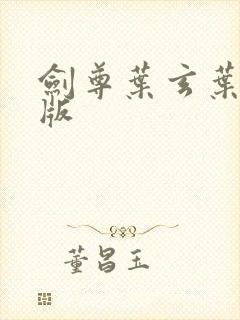 劍尊葉玄葉
版
董昌玉